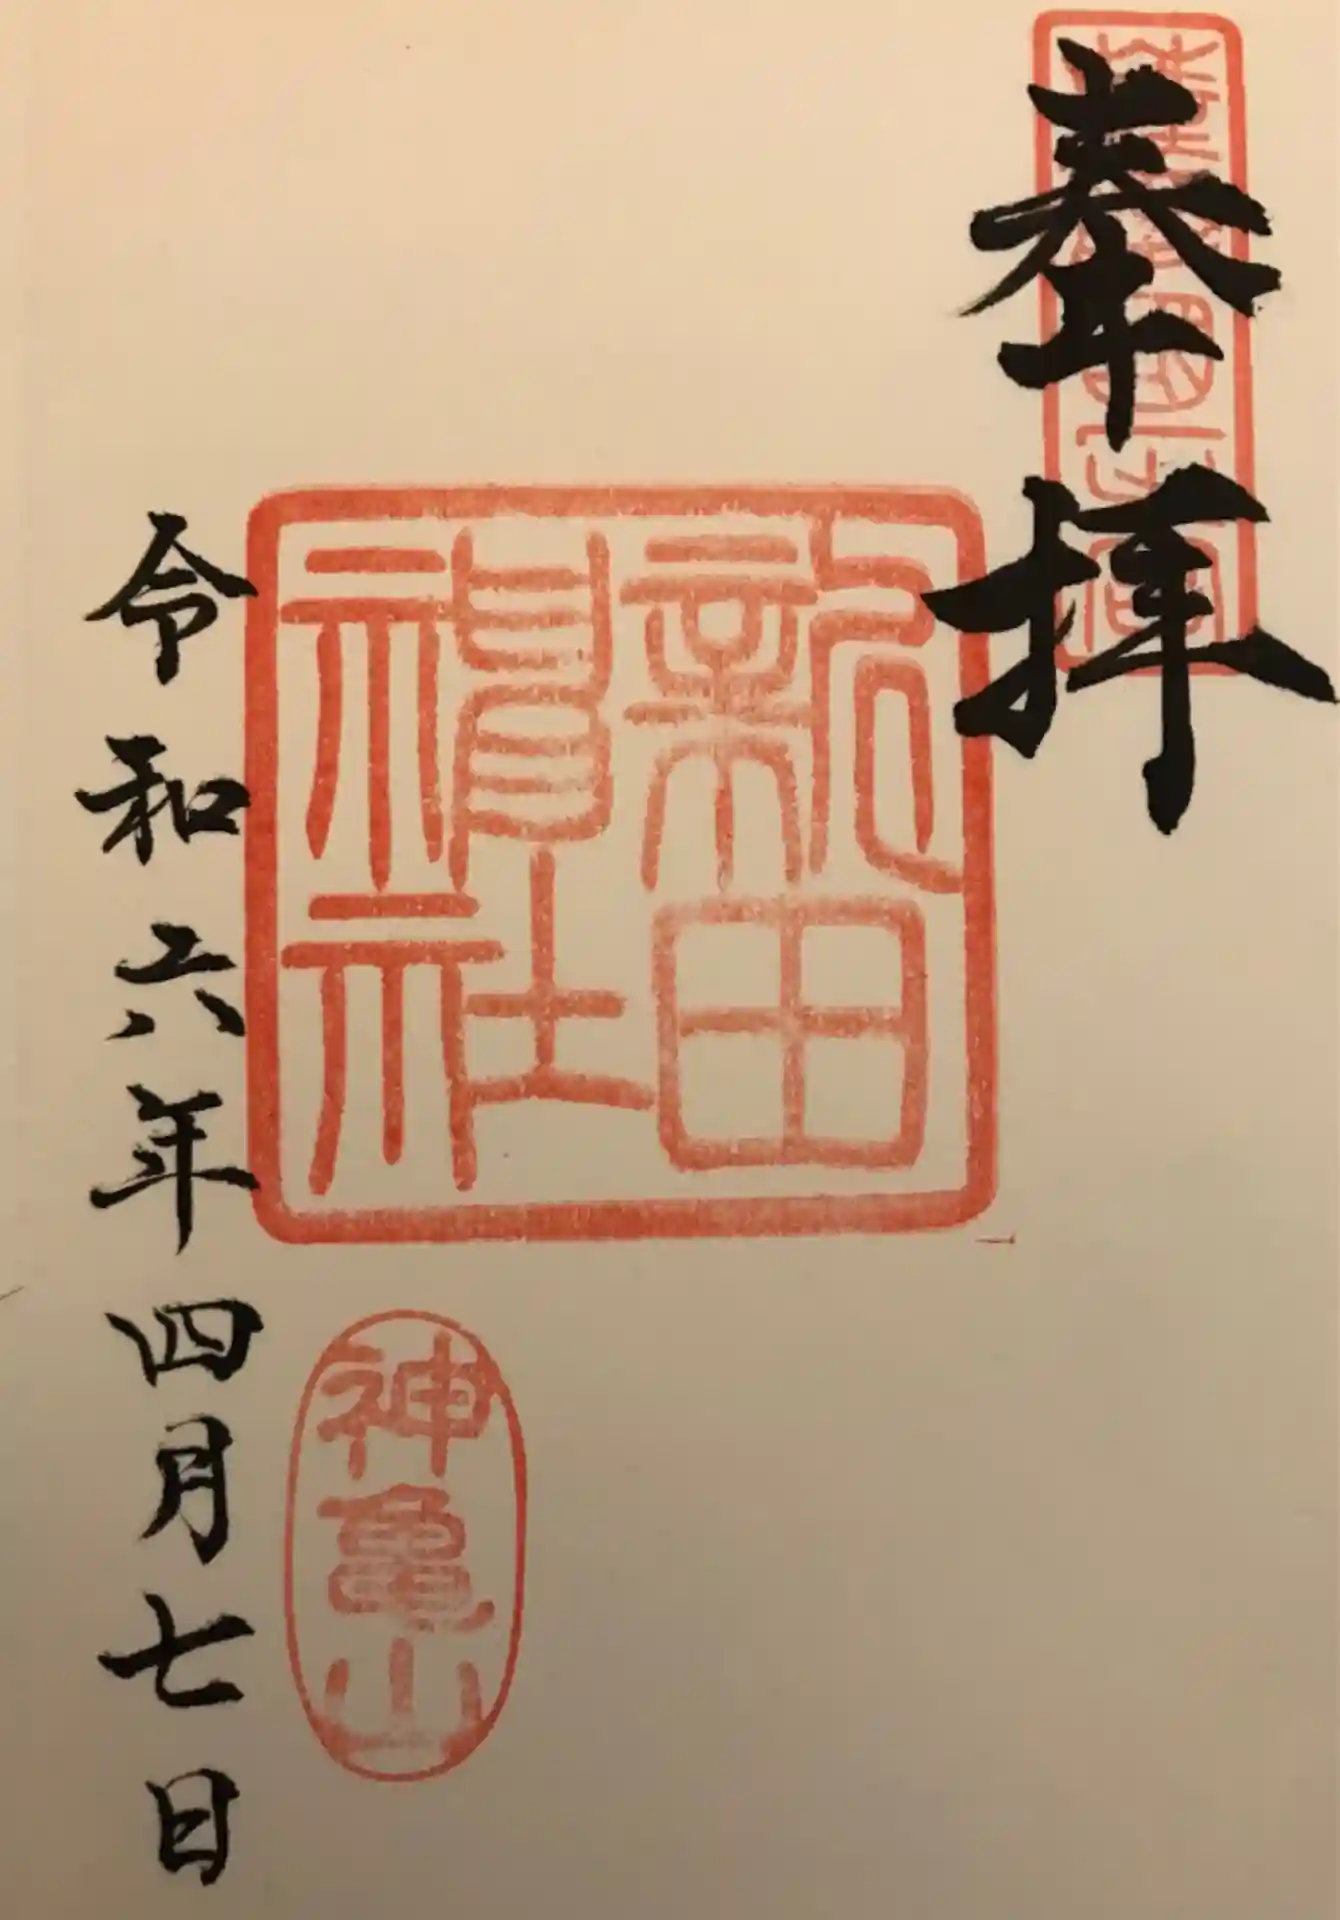 奉拝
新田神社
神亀山
令和六年四月七日